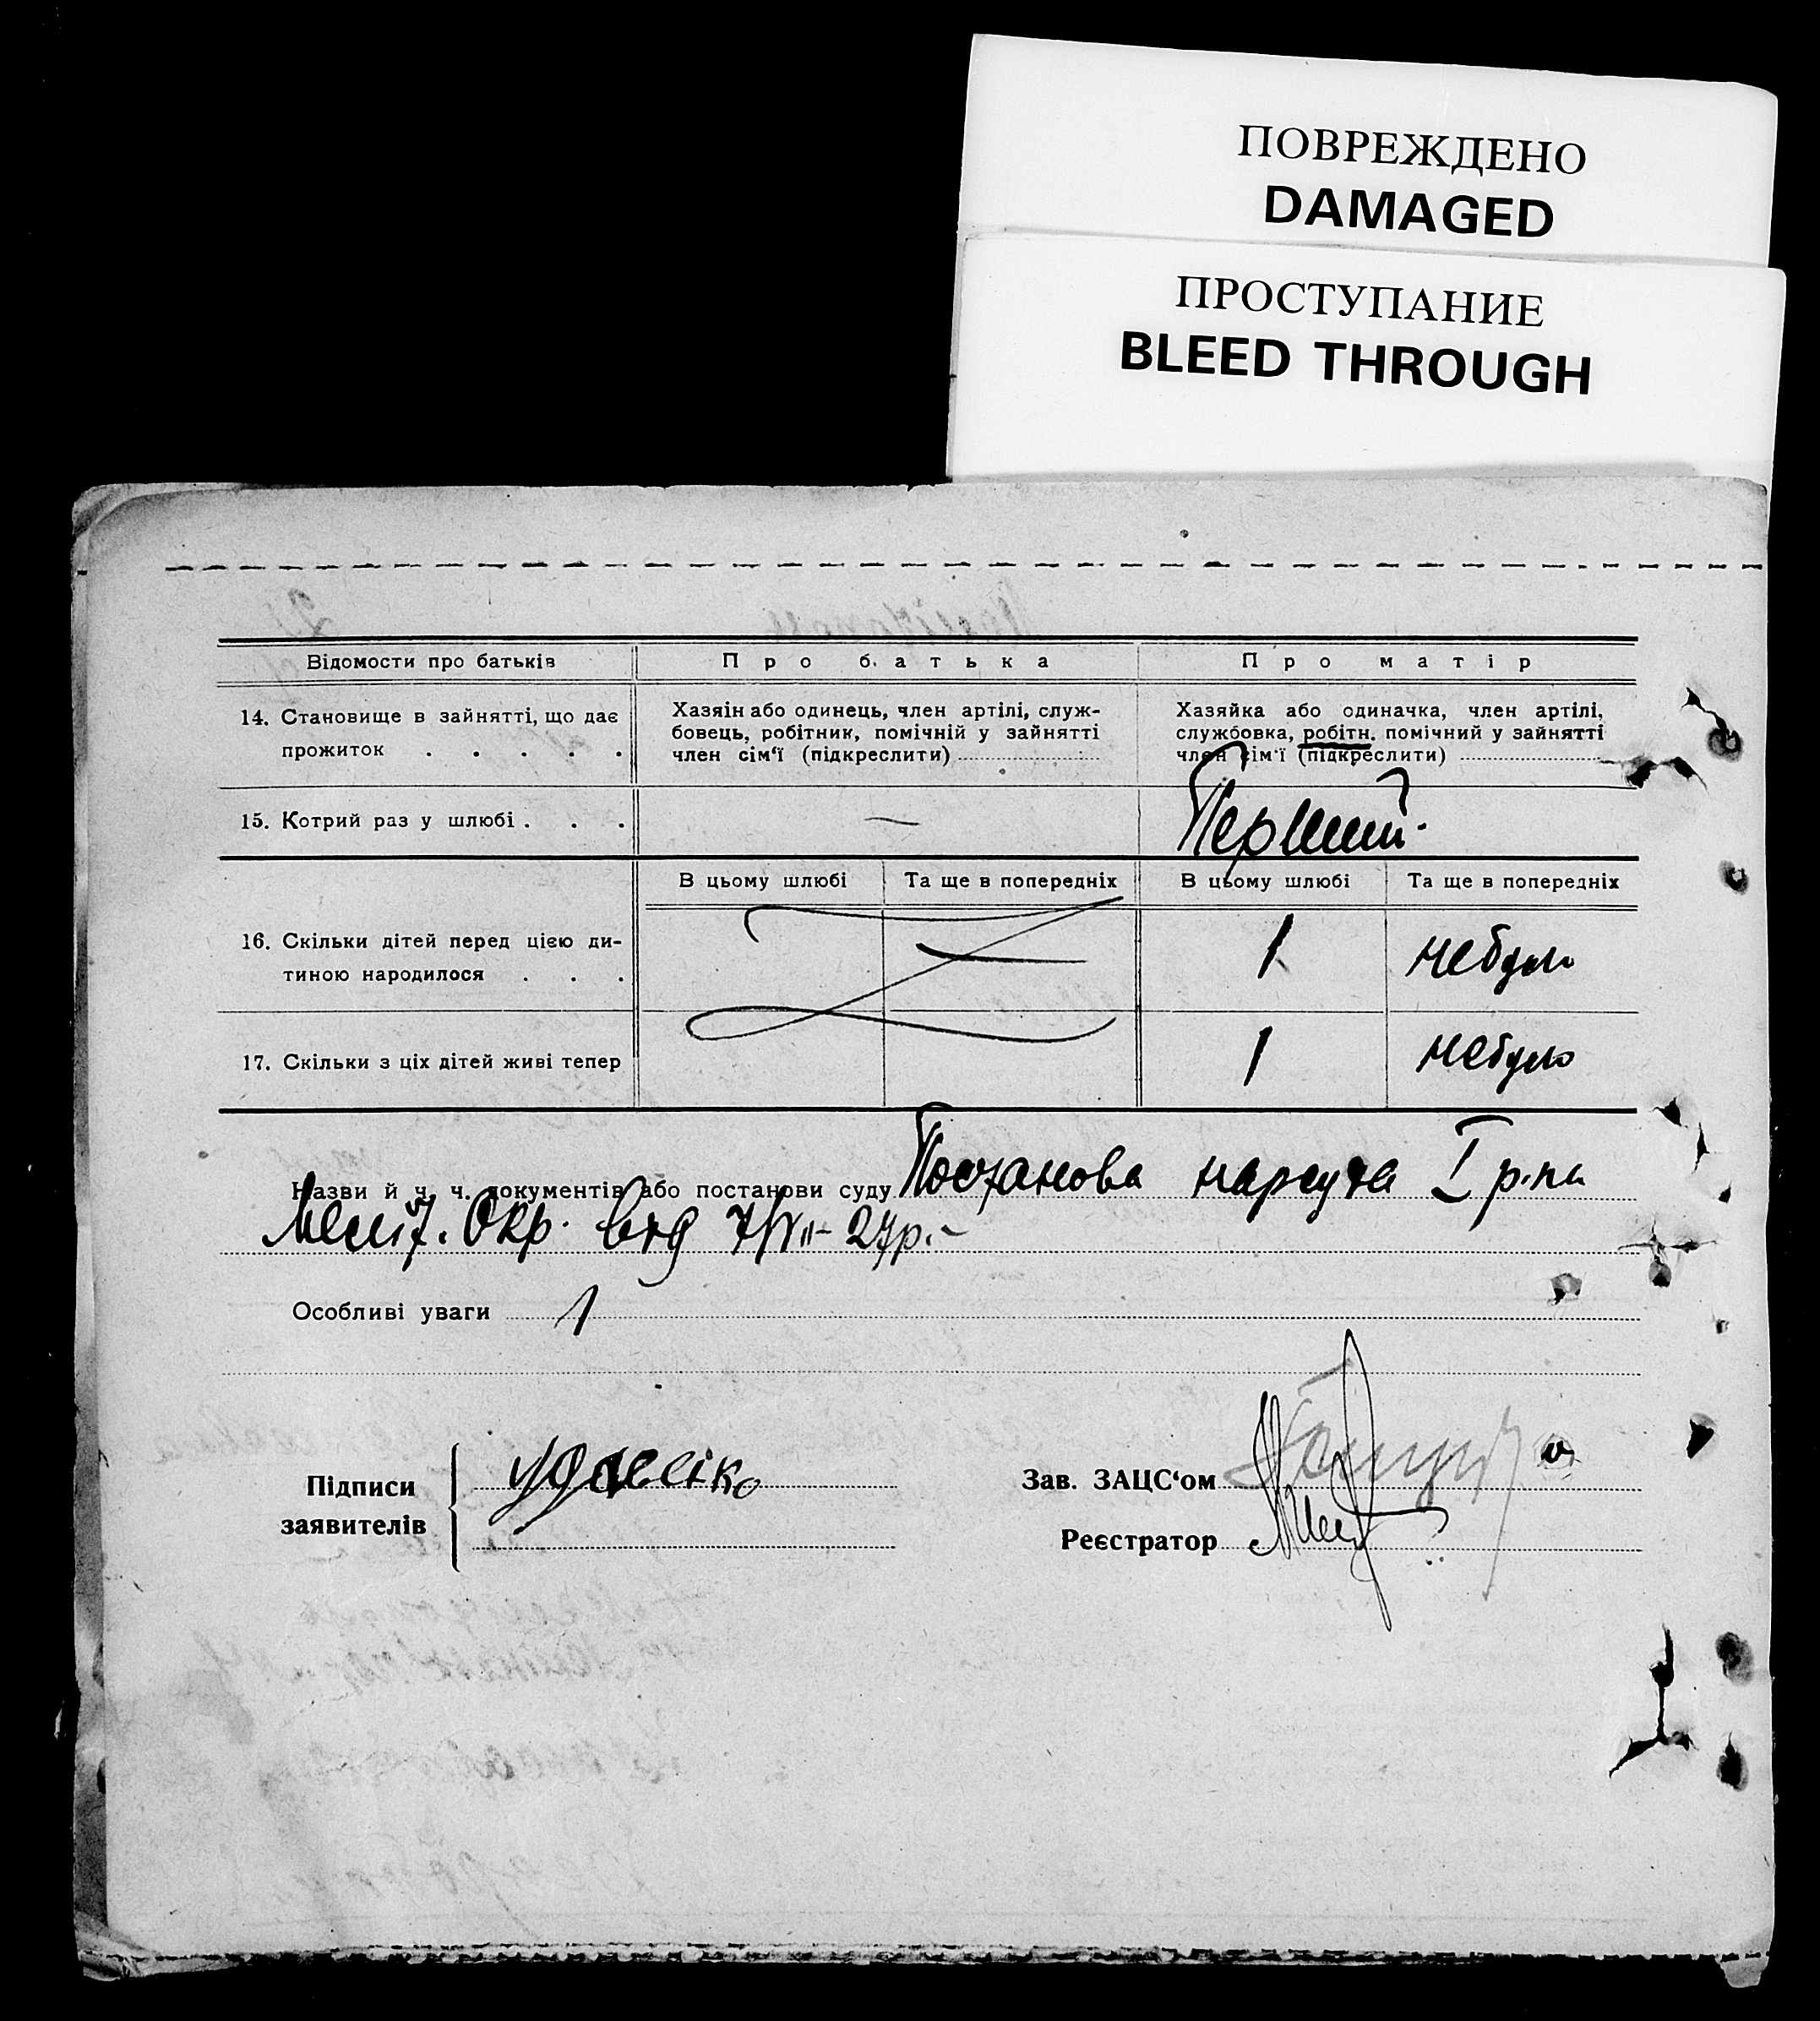 ПОВРЕЖДЕНО
DAMAGED
ПРОСТУПАНИЕ
BLEED THROUGH
Відомости про батьків Про батька Про матір
14. Становище в зайнятті, що дає прожиток . . . . .
Хазяін або одинець, член артілі, служ-
бовець, робітник, помічній у зайнятті
член сім'ї (підкреслити)
Хазяйка або одиначка, член артілі,
службовка, робітн. помічний у зайнятті
член сім'ї (підкреслити)
15. Котрий раз у шлюбі . . . — Перший.
В цьому шлюбі Та ще в попередніх В цьому шлюбі Та ще в попередніх
16. Скільки дітей перед цією ди-
тиною народилося . . . 1 небуло
17. Скільки з ціх дітей живі тепер 1 небуло
Назви й ч. ч. документів або постанови суду Постанова нарсуда I р-на
Меліт. Окр. від 27р.-
Особливі уваги
Підписи
заявителів
Зав. ЗАЦС'ом
Реєстратор